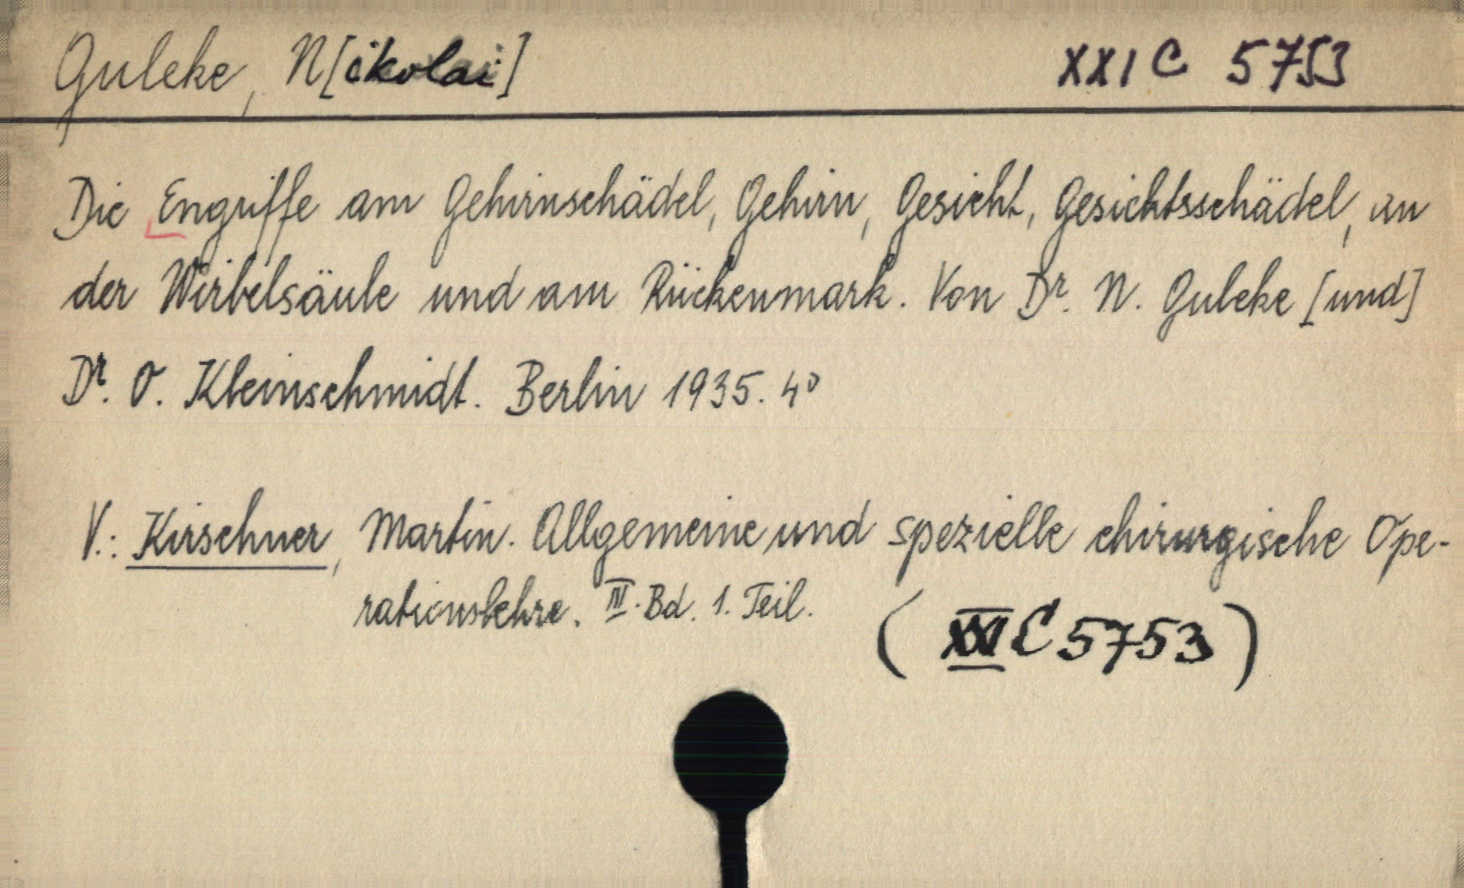 Guleke, N[ikolai] XXI C 5753
Die Engriffe am Gehirnschädel, Gehirn, Gesicht, Gesichtsschädel, an
der Wirbelsäule und am Rückenmark. Von Dr. N. Guleke [und]
Dr. O. Kleinschmidt. Berlin 1935. 4°
V.: Kirschner, Martin. Allgemeine und spezielle chirurgische Ope-
rationslehre. IV. Bd. 1. Teil.
(XXI C 5753)